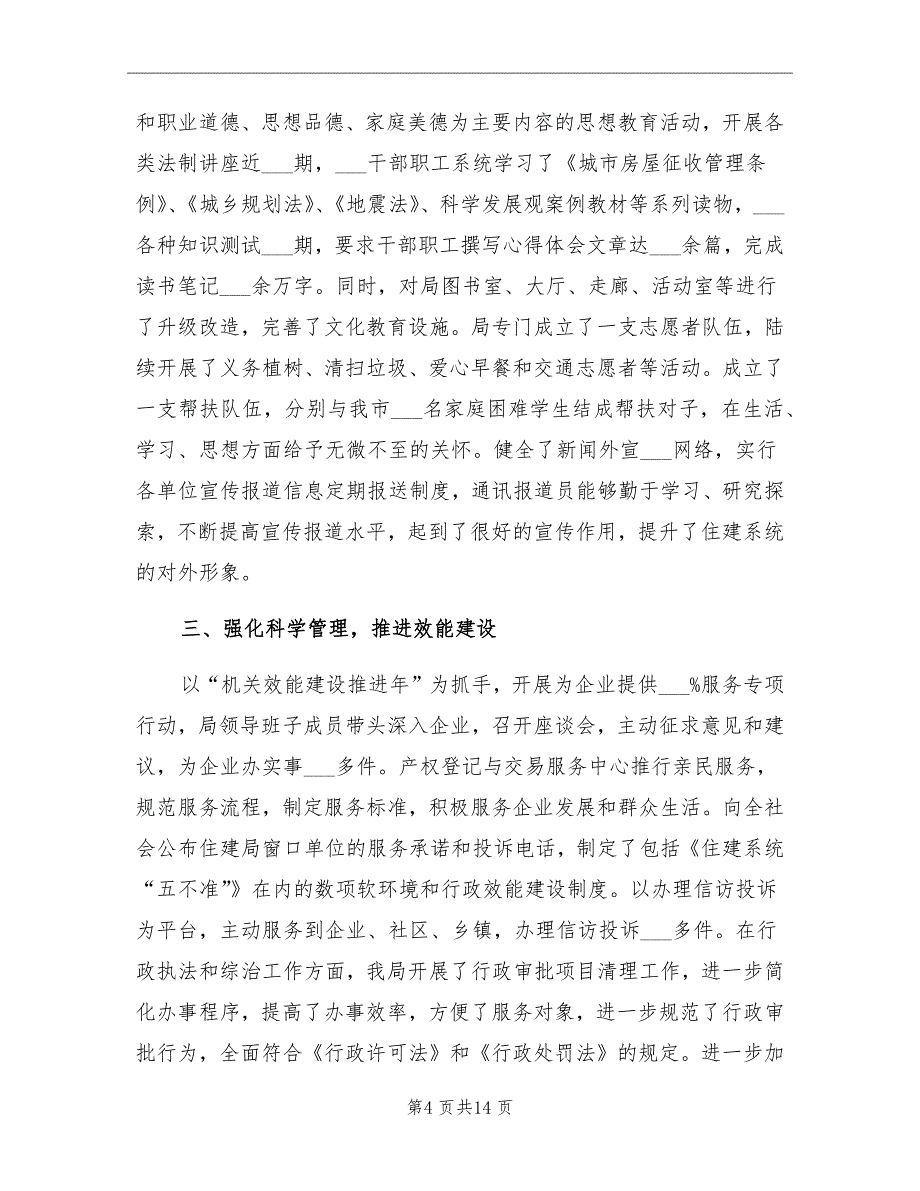 和职业道德、思想品德、家庭美德为主要内容的思想教育活动，开展各
类法制讲座近___期，___干部职工系统学习了《城市房屋征收管理条
例》、《城乡规划法》、《地震法》、科学发展观案例教材等系列读物，___
各种知识测试___期，要求干部职工撰写心得体会文章达___余篇，完成
读书笔记___余万字。同时，对局图书室、大厅、走廊、活动室等进行
了升级改造，完善了文化教育设施。局专门成立了一支志愿者队伍，陆
续开展了义务植树、清扫垃圾、爱心早餐和交通志愿者等活动。成立了
一支帮扶队伍，分别与我市___名家庭困难学生结成帮扶对子，在生活、
学习、思想方面给予无微不至的关怀。健全了新闻外宣___网络，实行
各单位宣传报道信息定期报送制度，通讯报道员能够勤于学习、研究探
索，不断提高宣传报道水平，起到了很好的宣传作用，提升了住建系统
的对外形象。
三、强化科学管理，推进效能建设
以“机关效能建设推进年”为抓手，开展为企业提供___%服务专项
行动，局领导班子成员带头深入企业，召开座谈会，主动征求意见和建
议，为企业办实事___多件。产权登记与交易服务中心推行亲民服务，
规范服务流程，制定服务标准，积极服务企业发展和群众生活。向全社
会公布住建局窗口单位的服务承诺和投诉电话，制定了包括《住建系统
“五不准”》在内的数项软环境和行政效能建设制度。以办理信访投诉
为平台，主动服务到企业、社区、乡镇，办理信访投诉___多件。在行
政执法和综治工作方面，我局开展了行政审批项目清理工作，进一步简
化办事程序，提高了办事效率，方便了服务对象，进一步规范了行政审
批行为，全面符合《行政许可法》和《行政处罚法》的规定。进一步加
第4 页共14 页